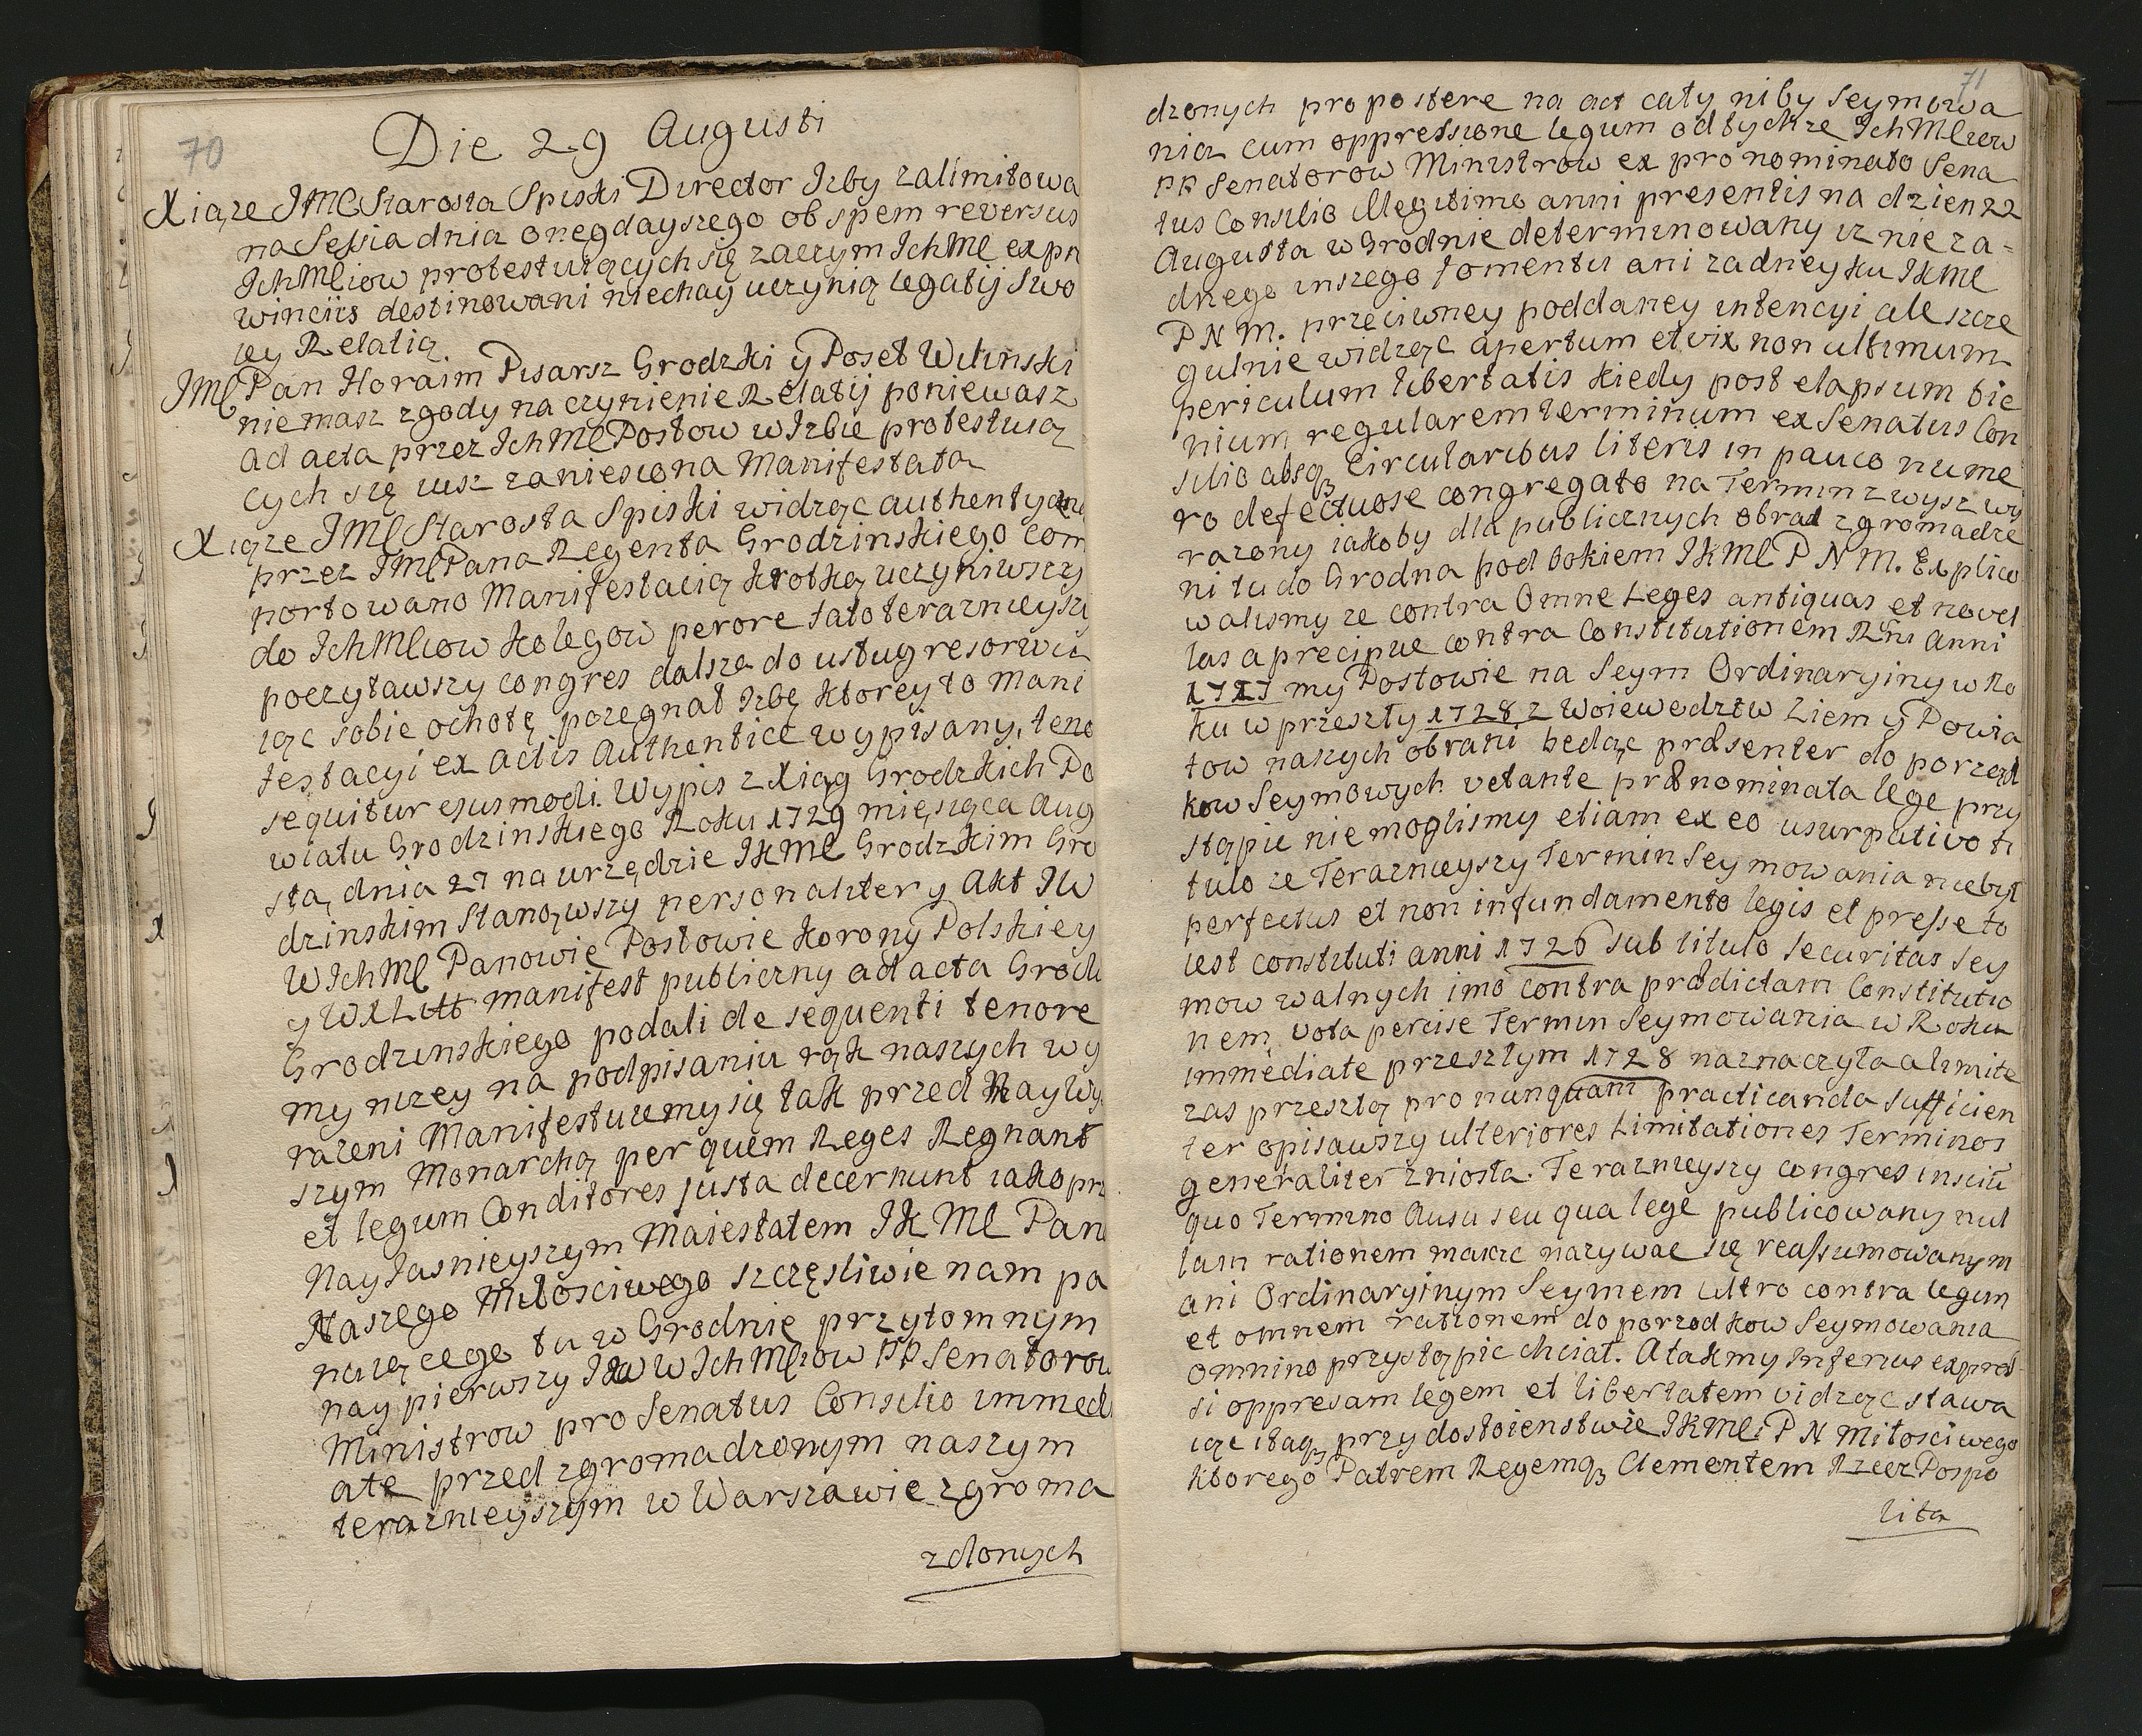 70
Die 29 Augusti
Xiąze JMC Starosta Spiski Director Izby zalimitowa
na Sessia dnia onegdayszego ob spem reversus
IchMciow protestuiących się zaczym IchMc ex pro
winciis destinowani niechay uczynią legatij swo
iey Relatią
JMc Pan Horaim Pisarz Grodzki y Poseł Wilinski
nie masz zgody na czynienie Relatij poniewasz
ad acta przez IchMc Posłow w Izbie protestuią
cych się iusz zaniesiona Manifestata
Xiąze JMc Starosta Spiski widząc authentyczną
przez JMc Pana Regenta Grodzinskiego com
portowano Manifestacią krotką uczyniwszy
do IchMciow kolegow perore tato terazneyszy
poczytawszy congres dalsza do usług resorwu
iąc sobie ochotę pozegnał Izbę ktorey to mani
festacyi ex actis Authentice wypisany, teno
sequitur ejusmodi. Wypis z Xiąg Grodzkich Po
wiatu Grodzinskiego Roku 1729 miesiąca Aug
sta, dnia 27 na urzędzie JKMc Grodzkim Gro
dzinskim Stanąwszy personaliter y Akt JW
WIchMc Panowie Posłowie Korony Polskiey
y WXLitt manifest publiczny ad acta Grodu
Grodzinskiego podali de sequenti tenore
my nizey na podpisaniu rąk naszych wy
razeni Manifestuiemy się tak przed Naywy
szym Monarchą per quem Reges Regnant
et legum Conditores justa decernunt iako prz
Nayiasnieyszym Maiestatem JKMc Pana
Naszego Miłosciwego szczęsliwie nam pa
nuiącego tu w Grodnie przytomnym
nay pierwszy JW WIchMciow PP Senatorow
Ministrow pro Senatus Consilio immedi
ate przed zgromadzonym naszym
terazneyszym w Warszawie zgroma
zdonych
71
dzonych propostere na act cały niby Seymowa
nia cum oppressione legum od tychze IchMciow
PP Senatorow Ministrow ex pro nominato Sena
tus Consilio illegitimo anni presentis na dzien 22
Augusta w Grodnie determinowany iz nie za-
dnego inszego fomentu ani zadney ku JKMc
P N M. przeciwney poddaney intencyi ale szcze
gulnie widząc apertum et vix non ultimum
periculum libertatis kiedy post elapsum bie
nium regularem terminum ex Senatus Con
silio absqꝫ Circularibus literis in pauco nume
ro defectuose congregato na Termin zwysz wy
razony iakoby dla publicznych obrad zgromadze
ni tu do Grodna pod bokiem JKMc P N M. Explico
walismy ze contra Omne Leges antiquas et novel
las a precipue contra Constitutionem Rgni anni
1717 my Posłowie na Seym Ordinaryiny w Ro
ku w przeszły 1728 z Woiewodztw Ziem y Powia
tow naszych obrani bedąc præsenter do porząd
kow Seymowych vetante prænominata lege przy
stąpic nie moglismy etiam ex eo usurpativo ti
tulo ze Terazneyszy Termin Seymowania niebył
perfectus et non infundamento legis et presse to
iest constituti anni 1726 sub titulo Securitas Sey
mow walnych imo contra prædictam Constitutio
nem, vota percise Termin Seymowania w Roku
immediate przeszłym 1728 naznaczyła a limite
zas przeszłą pro nunquam practicanda sufficien
ter opisawszy ulteriores Limitationes Terminos
generaliter zniosła. Terazneyszy congres insciũ
quo Termino Ausu seu qua lege publicowany nul
lam rationem maiąc nazywac się reassumowanym
ani Ordinaryinym Seymem ultro contra legem
et omnem rationem do porzodkow Seymowania
omnino przystąpic chciał. A tak my Inferius expres-
si oppresam legem et libertatem vidząc stawa
iąc itaqꝫ przy dostoienstwie JKMci P N Miłosciwego
ktorego Patrem Regemqꝫ Clementem Rzecz Pospo
lita